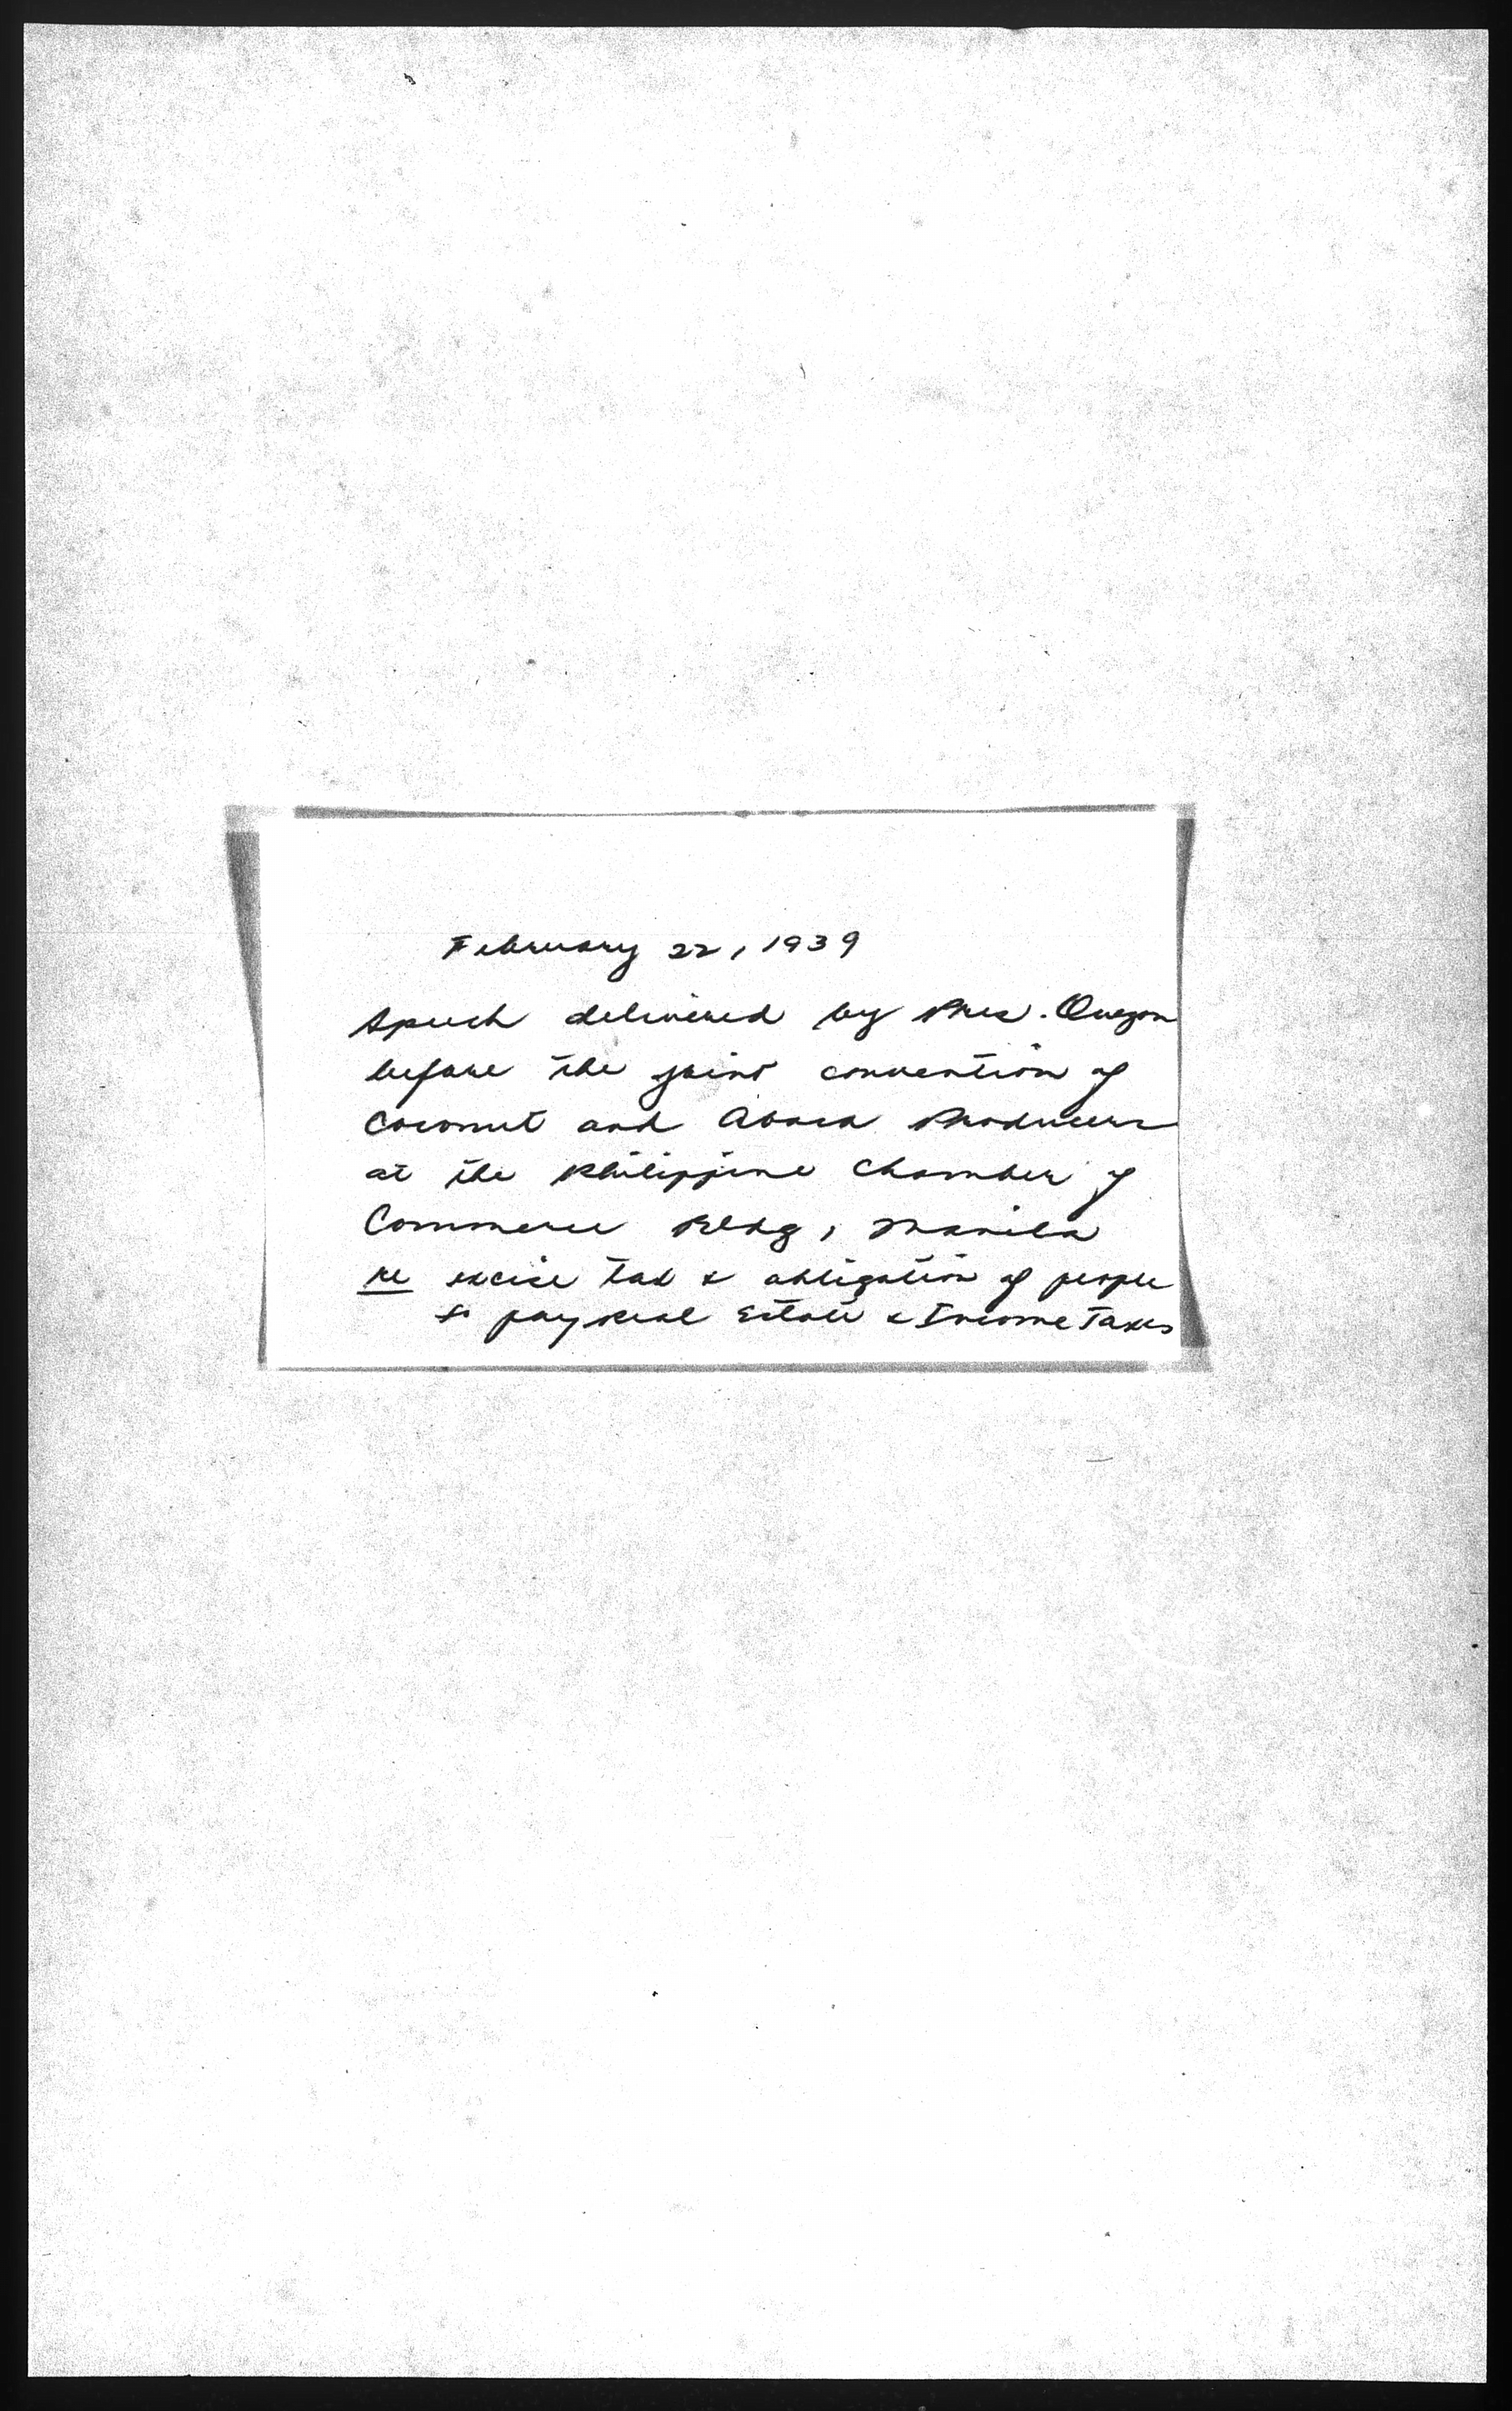 February 22, 1939
Speech delivered by Pres. Quezon
before the joint convention of
Coconut and Abaca Producers
at the Philippine Chamber of
Commerce Bldg, Manila
re excise tax & obligation of people
to pay Real Estate & Income Taxes